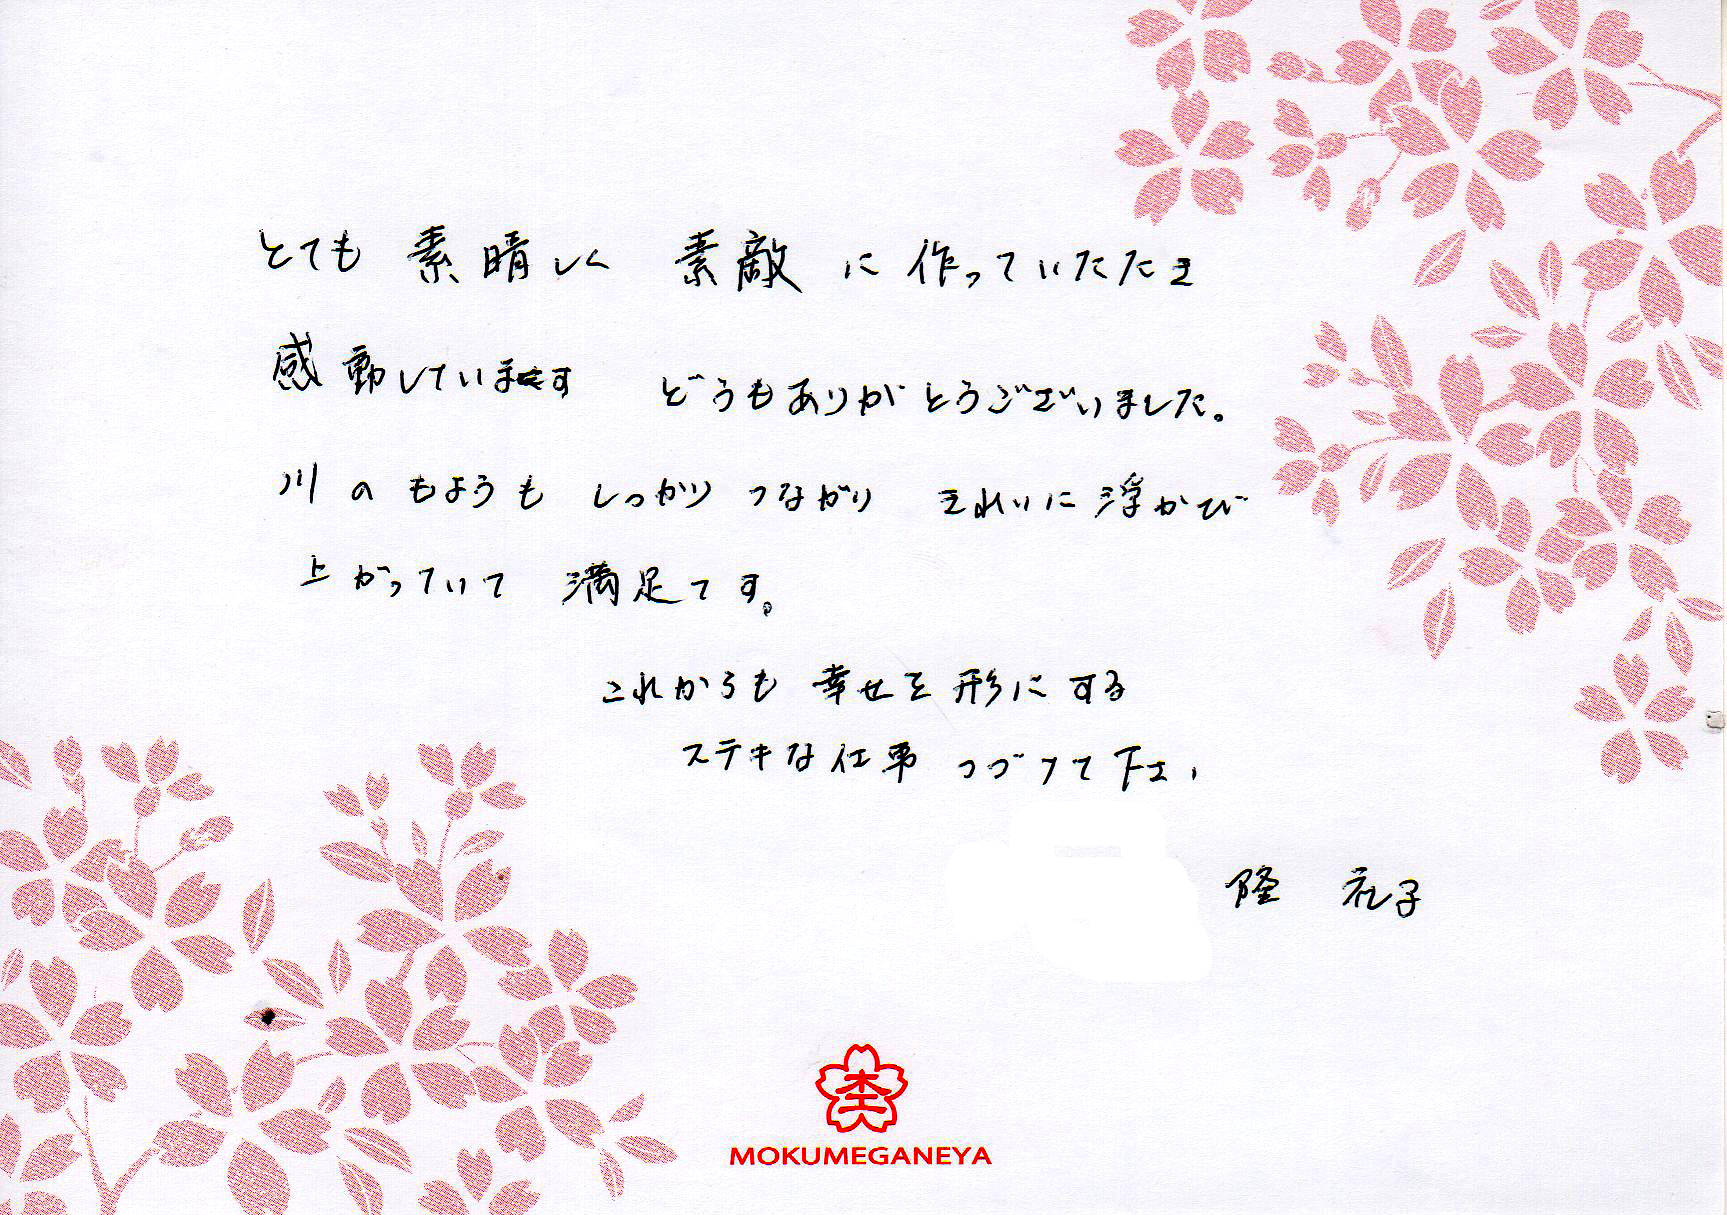 とても 素晴しく 素敵 に 作っていただき
感動しています どうもありがとうございました。
川のもようも しっかり つながり きれいに浮かび
上がっていて 満足です。
これからも 幸せを形にする
ステキな仕事 つづけて下さい
隆 礼子
MOKUMEGANEYA